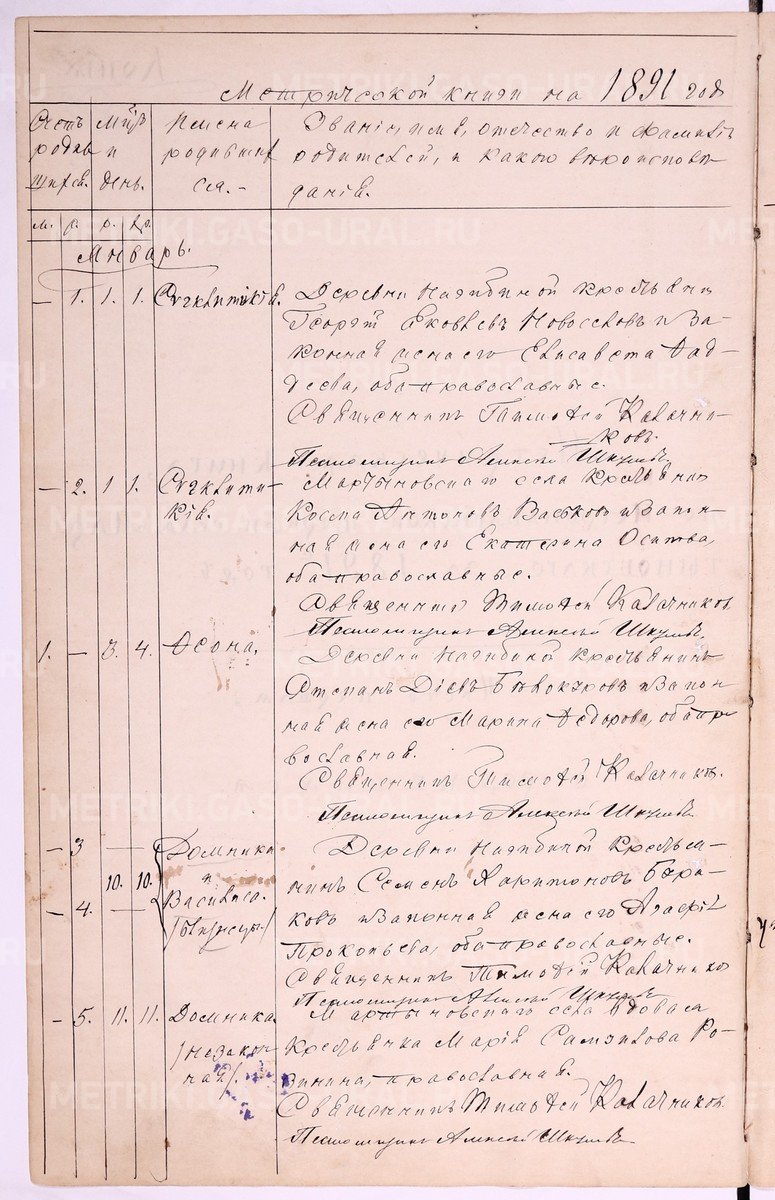 Метрической книги на 1891 годъ
Счетъ родившихся.
Мѣсяцъ и день.
Имена родившихся.
Званіе, имя, отчество и фамилія
родителей, и какого вѣроисповѣ-
данія.
м. ж. р. кр.
Январь.
— 1. 1. 1. Синклитикія.
Деревни крестьянинъ
Георгій Яковлевъ Новоселовъ и за-
конная жена его Елисавета Фад-
деева, оба православные.
Священникъ Тимофей Калачни-
ковъ.
Псаломщикъ Алексѣй
— 2. 1 1. Синклити-
кія.
Мартыновскаго села крестьянинъ
Косма Антоновъ Васьковъ и закон-
ная жена его Екатерина Осипова,
оба православные.
Священникъ Тимофей Калачниковъ
Псаломщикъ Алексѣй
1. — 3. 4. Ѳеона.
Деревни крестьянинъ
Степанъ Діевъ Бѣлокуровъ и закон-
ная жена его Марина Ѳедорова, оба пра
вославная.
Священникъ Тимофей Калачниковъ.
Псаломщикъ Алексѣй
— 3 — Домника
и
10. 10.
— 4. — Василиса.
/близнецы/
Деревни крестья-
нинъ Семенъ Харитоновъ
ковъ и законная жена его Агафія
Прокопьева, оба православные.
Священникъ Тимофей Калачниковъ
Псаломщикъ Алексѣй
— 5. 11. 11. Домника.
/незакон
ная/.
Мартыновскаго села вдова
крестьянка Марія Самуилова Ро-
зинина, православная.
Священникъ Тимофей Калачниковъ
Псаломщикъ Алексѣй
METRIKI.GASO-URAL.RU